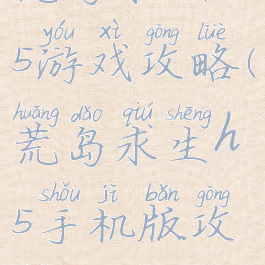 yóu xì gōng lüè
5游戏攻略(
huāng dǎo qiú shēng
荒岛求生h
shǒu jī bǎn gōng
5手机版攻